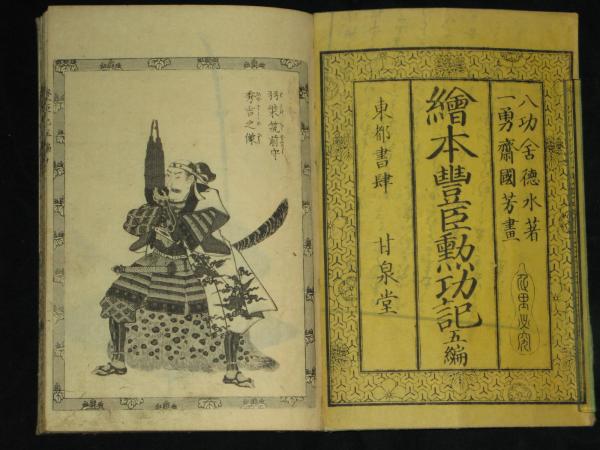 八功舎德水著
一勇齋國芳畫
繪本豐臣勲功記 五編
東都書肆 甘泉堂
羽柴筑前守
秀吉之像